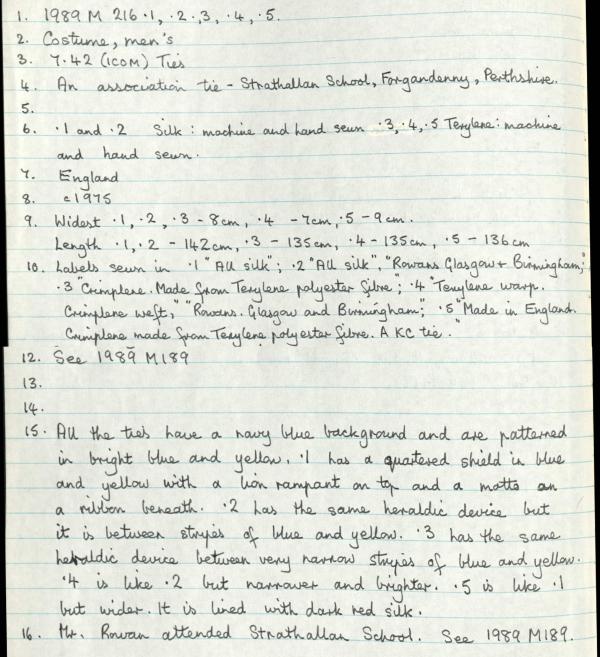 1. 1989 M 216 .1, .2, .3, .4, .5.
2. Costume, men's
3. 7.42 (ICOM) Ties
4. An association tie - Strathallan School, Forgandenny, Perthshire.
5.
6. .1 and .2 Silk : machine and hand sewn .3, .4, .5 Terylene : machine
and hand sewn.
7. England
8. c1975
9. Widest .1, .2, .3 - 8cm, .4 - 7cm, .5 - 9cm.
Length .1, .2 - 142cm, .3 - 135cm, .4 - 135cm, .5 - 136cm
10. Labels sewn in .1 "All silk"; .2 "All silk", "Rowans Glasgow + Birmingham;"
.3 "Crimplene. Made from Terylene polyester fibre"; .4 "Terylene warp.
Crimplene weft," "Rowans. Glasgow and Birmingham"; .5 "Made in England.
Crimplene made from Terylene polyester fibre. A KC tie."
12. See 1989 M189
13.
14.
15. All the ties have a navy blue background and are patterned
in bright blue and yellow. .1 has a quartered shield in blue
and yellow with a lion rampant on top and a motto on
a ribbon beneath. .2 has the same heraldic device but
it is between stripes of blue and yellow. .3 has the same
heraldic device between very narrow stripes of blue and yellow.
.4 is like .2 but narrower and brighter. .5 is like .1
but wider. It is lined with dark red silk.
16. Mr. Rowan attended Strathallan School. See 1989 M189.